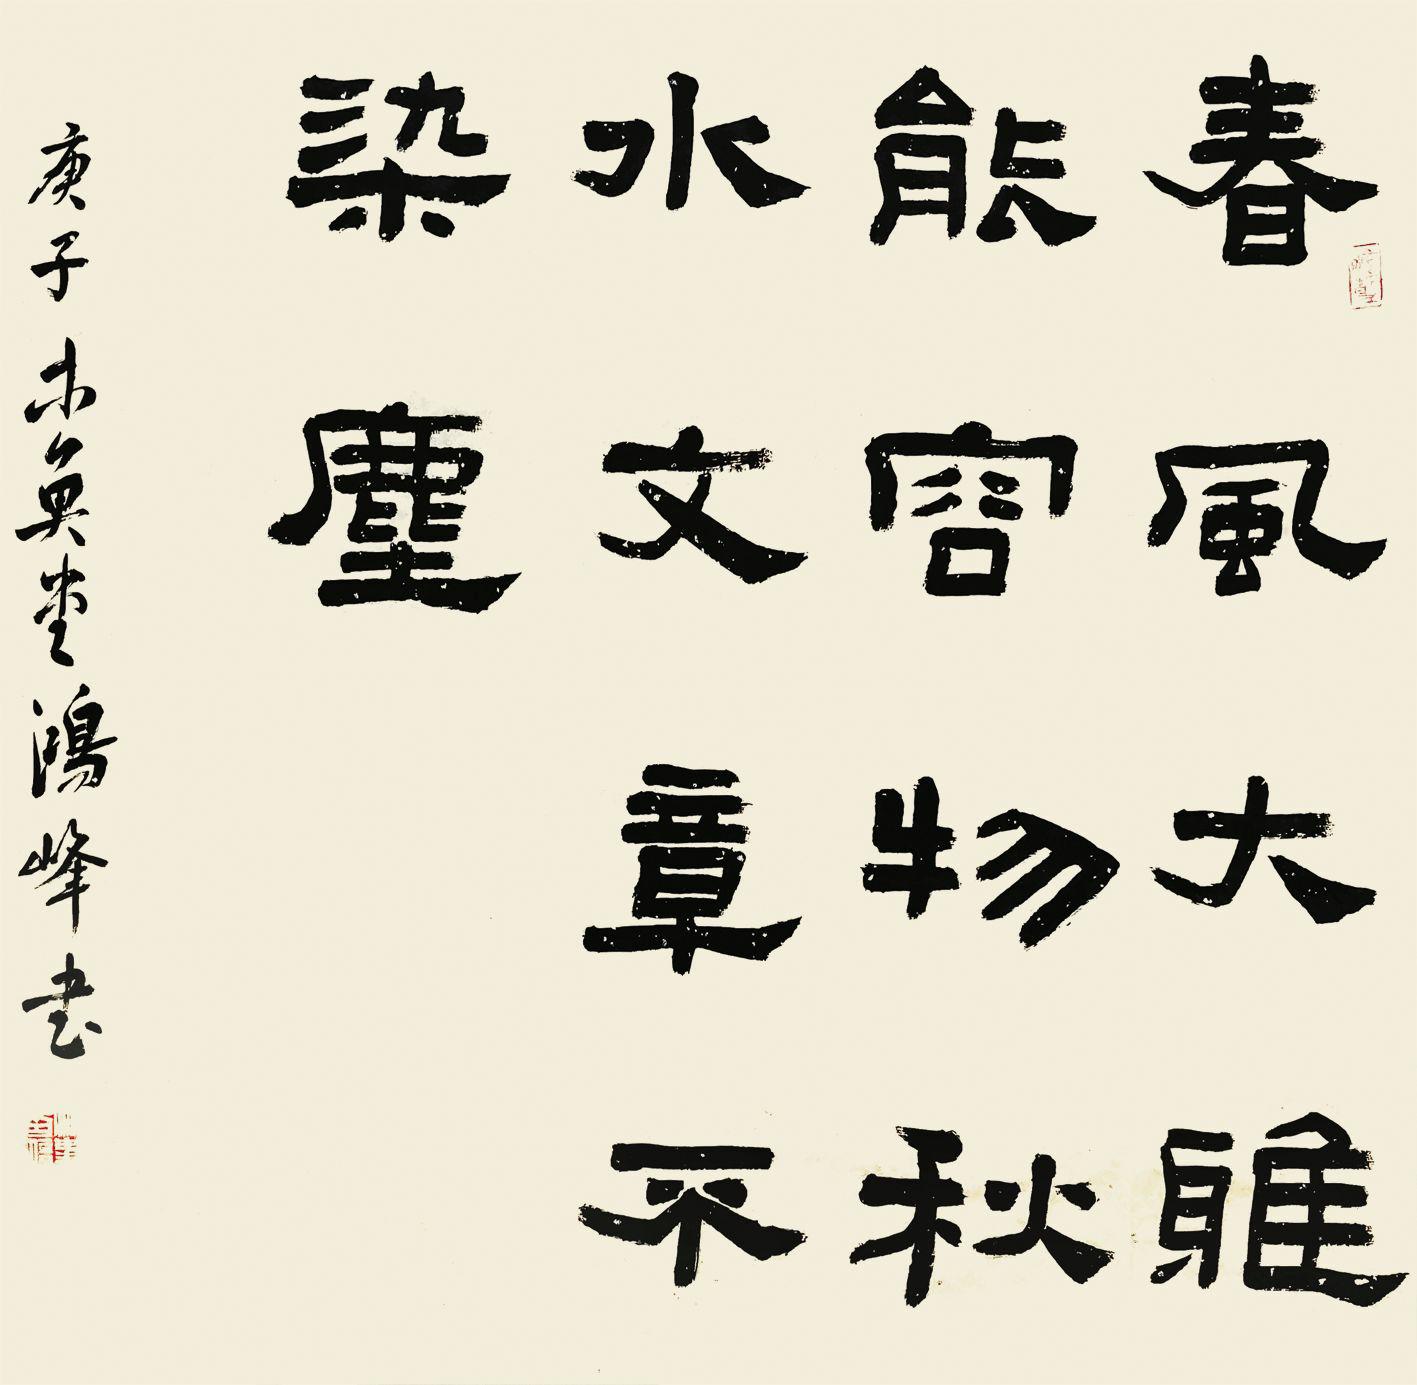 春風大雅
能容物秋
水文章不
染塵
庚子木魚堂鴻峰书